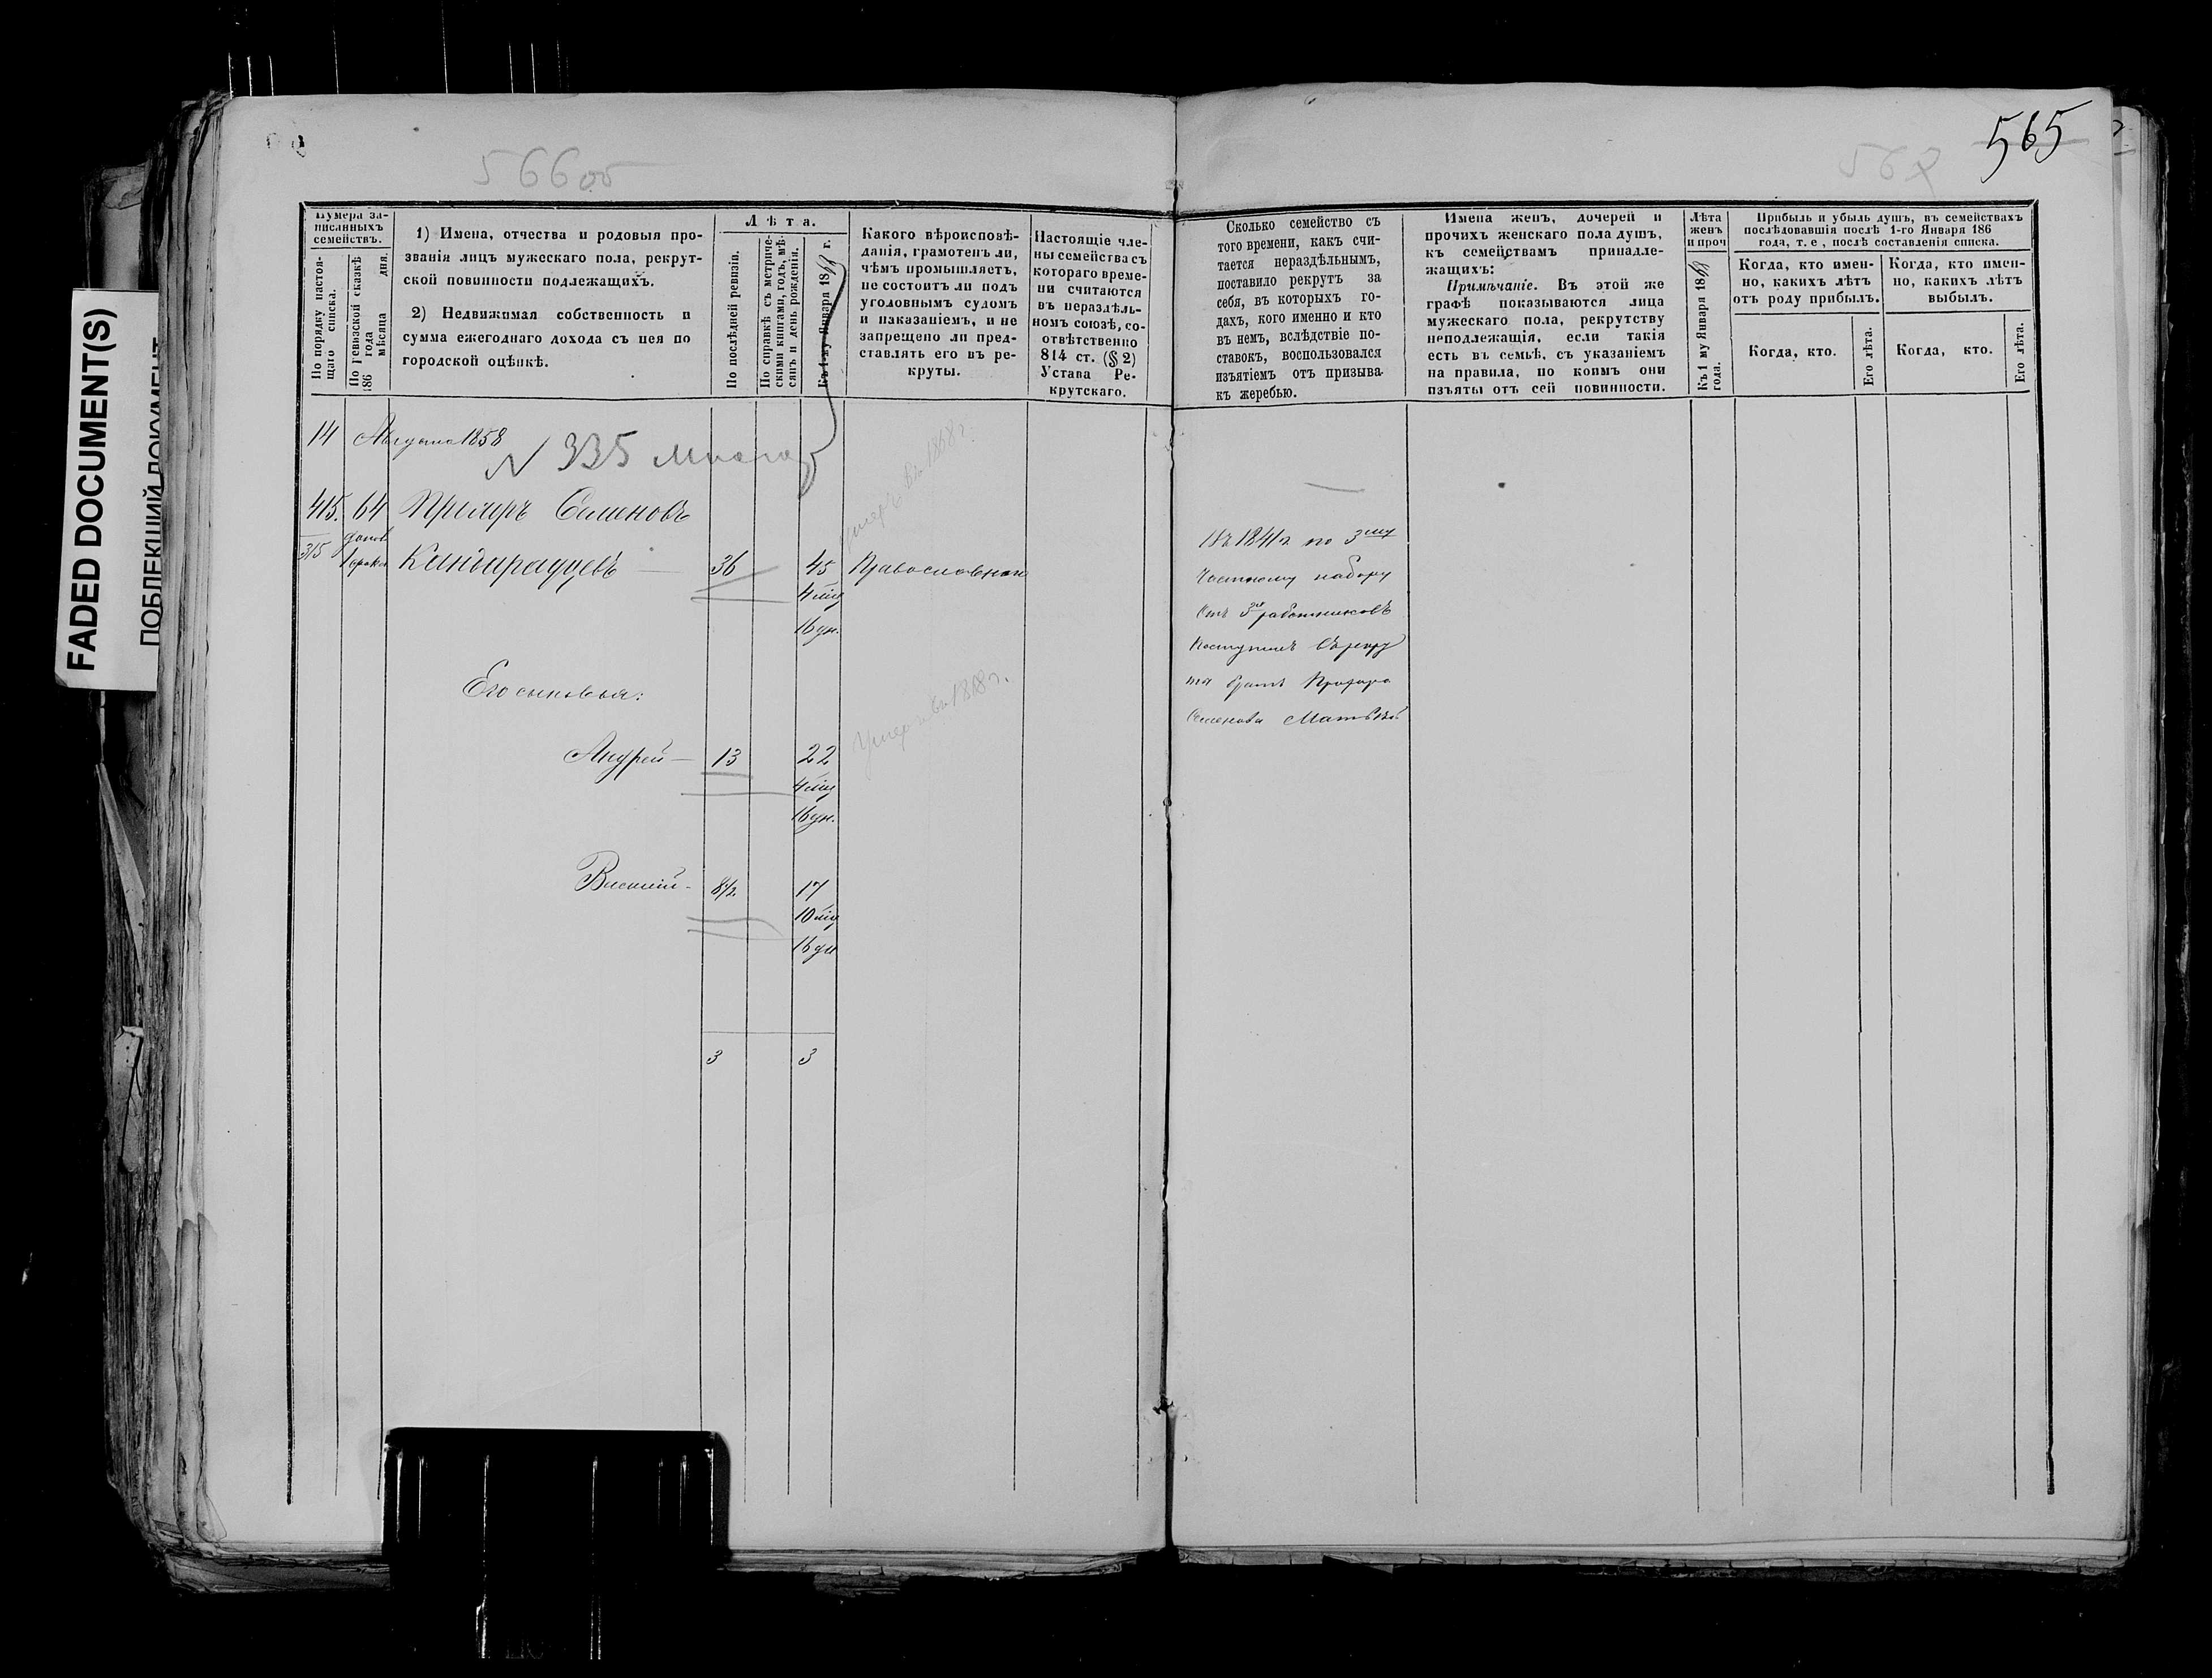 FADED DOCUMENT(S)
ПОБЛЕКШИЙ ДОКУМЕНТ
566 об
565
Нумера за-
писанныхъ
семействъ.
По порядку настоя-
щаго списка.
По ревизской сказкѣ
186 года
мѣсяца дня.
1) Имена, отчества и родовыя про-
званія лицъ мужескаго пола, рекрут-
ской повинности подлежащихъ.
2) Недвижимая собственность и
сумма ежегоднаго дохода съ нея по
городской оцѣнкѣ.
Лѣта.
По послѣдней ревизіи.
По справкѣ съ метриче-
скими книгами, годъ, мѣ-
сяцъ и день рожденія.
Къ 1-му Января 18 г.
Какого вѣроисповѣ-
данія, грамотенъ ли,
чѣмъ промышляетъ,
не состоитъ ли подъ
уголовнымъ судомъ
и наказаніемъ, и не
запрещено ли пред-
ставлять его въ ре-
круты.
Настоящіе чле-
ны семейства съ
котораго време-
ни считаются
въ нераздѣль-
номъ союзѣ, со-
отвѣтственно
814 ст. (§ 2)
Устава Ре-
крутскаго.
Сколько семейство съ
того времени, какъ счи-
тается нераздѣльнымъ,
поставило рекрутъ за
себя, въ которыхъ го-
дахъ, кого именно и кто
въ немъ, вслѣдствіе по-
ставокъ, воспользовался
изъятіемъ отъ призыва
къ жеребью.
Имена женъ, дочерей и
прочихъ женскаго пола душъ,
къ семействамъ принадле-
жащихъ:
Примѣчаніе. Въ этой же
графѣ показываются лица
мужескаго пола, рекрутству
неподлежащія, если такія
есть въ семьѣ, съ указаніемъ
на правила, по коимъ они
изъяты отъ сей повинности.
Лѣта
женъ
и проч
Къ 1 му Января 18
года.
Прибыль и убыль душъ, въ семействахъ
послѣдовавшія послѣ 1-го Января 186
года, т. е, послѣ составленія списка.
Когда, кто имен-
но, какихъ лѣтъ
отъ роду прибылъ.
Когда, кто имен-
но, какихъ лѣтъ
выбылъ.
Когда, кто.
Его лѣта.
Когда, кто.
Его лѣта.
14 Августа 1858
N 335
415. 64 Семеновъ
315
36 45 Православнаго
4 мѣц
16 дн.
Его сыновья:
Умеръ въ 1868 г.
Андрей — 13 22
4 мѣц
16 дн.
Василій - 8 1/2 17
10 мѣц
16 дн
3 3
Въ 1841 г. по 3му
Частному набору
Отъ 3х работниковъ
Поступилъ въ рекру
ты братъ
Семенова Матвѣй